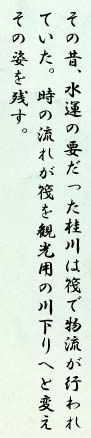 その昔、水運の要だった桂川は筏で物流が行われ
ていた。時の流れが筏を観光用の川下りへと変え
その姿を残す。